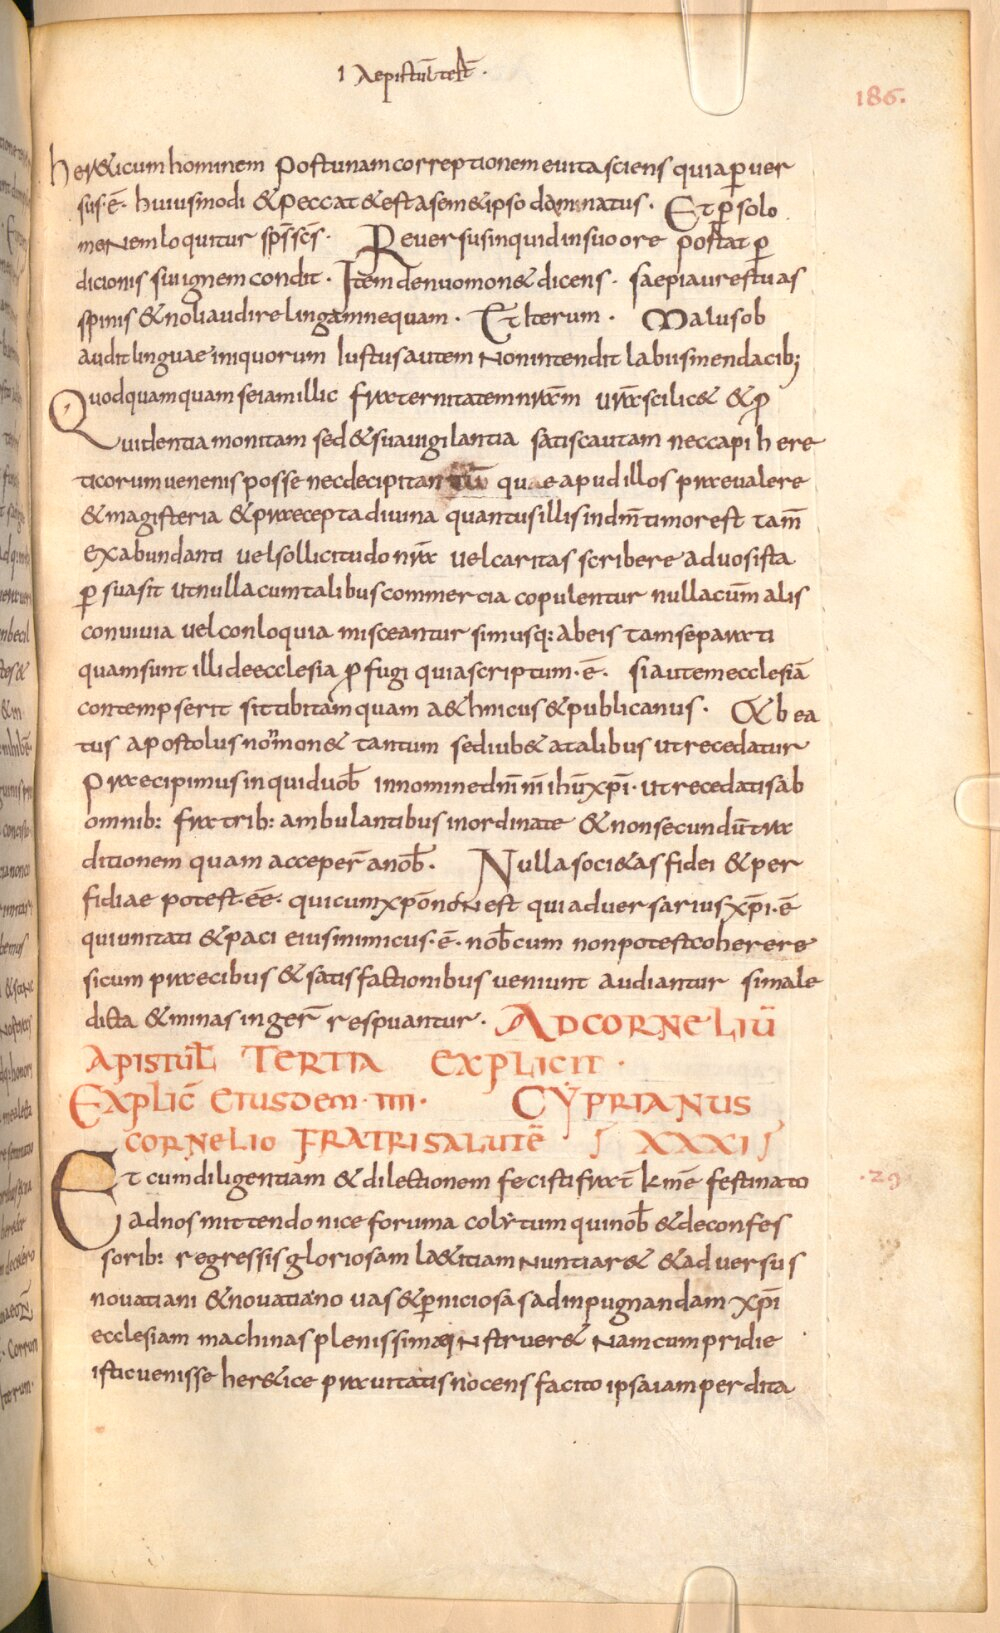 I Aepistul̄ test̄ ·
186.
her&icum hominem post unam correptionem euita sciens quia ꝑuer
sus·ē· huiusmodi & peccat & est a sem&ipso damnatus · Et ꝑ solo
menem loquitur sp̄s sc̄s · Reuersus inquid in suo ore portat ꝑ
dicionis suɩ ignem condit · Item denuo mon& dicens · saepi aures tuas
spinis & noli audire lingam nequam · Et Iterum · Malus ob
audit linguae iniquorum Iustus autem Non intendit labiis mendacib;
Quod quamquam seiam illic fraternitatem nr̄am ur̄a scilic& & ꝓ
uidentia monitam sed & sua uigilantia satis cautam nec capi here
ticorum uenenis posse nec decipi tantum quae apud illos praeualere
& magisteria & praecepta diuina quantus illis in dn̄m timor est tam̄
ex abundanti uel sollicitudo nr̄a uel caritas scribere ad uos ista
ꝑsuasit ut nulla cum talibus commercia copulentur nulla cum̄ alis
conuiuia uel conloquia misceantur simusq: ab eis tam separati
quam sunt illi de ecclesia ꝓfugi quia scriptum·ē· si autem ecclesiā
contempserit sit tibi tamquam a&hnicus & publicanus · & bea
tus apostolus non mon& tantum sed iub& a talibus ut recedatur
Praecipimus inquid uob̄ in nomine dn̄i n̄i ih̄u xp̄i · ut recedatis ab
omnib: fratrib: ambulantibus inordinate & non secundū tra
ditionem quam acceper̄ a nob̄ · Nulla soci&as fidei & per
fidiae potest·ēē· qui cum xp̄o non est qui aduersarius xp̄i·ē
qui unitati & paci eius inimicus·ē· nob̄cum non potest coherere
si cum praecibus & satisfactionibus ueniunt audiantur si male
dicta & minas inger̄ respuantur · AD CORNELIŪ
APISTUL̄ TERTIA EXPLICIT ·
EXPLIC̄ EIUSDEM · IIII · CYPRIANUS
CORNELIO FRATRI SALUTĒ ʃ XXXII ʃ
Et cum diligentiam & dilectionem fecisti frat̄ km̄e festinato · 29
ad nos mittendo niceforum acolytum qui nob̄ & de confes
sorib: regressis gloriosam la&itiam Nuntiar& & aduersus
nouatiani & nouati a no uas & ꝑniciosas ad inpugnandam xp̄i
ecclesiam machinas plenissime iNstruer& Nam cum pridie
istic uenisse her&ice prauitatis nocens facito ipsa iam perdita